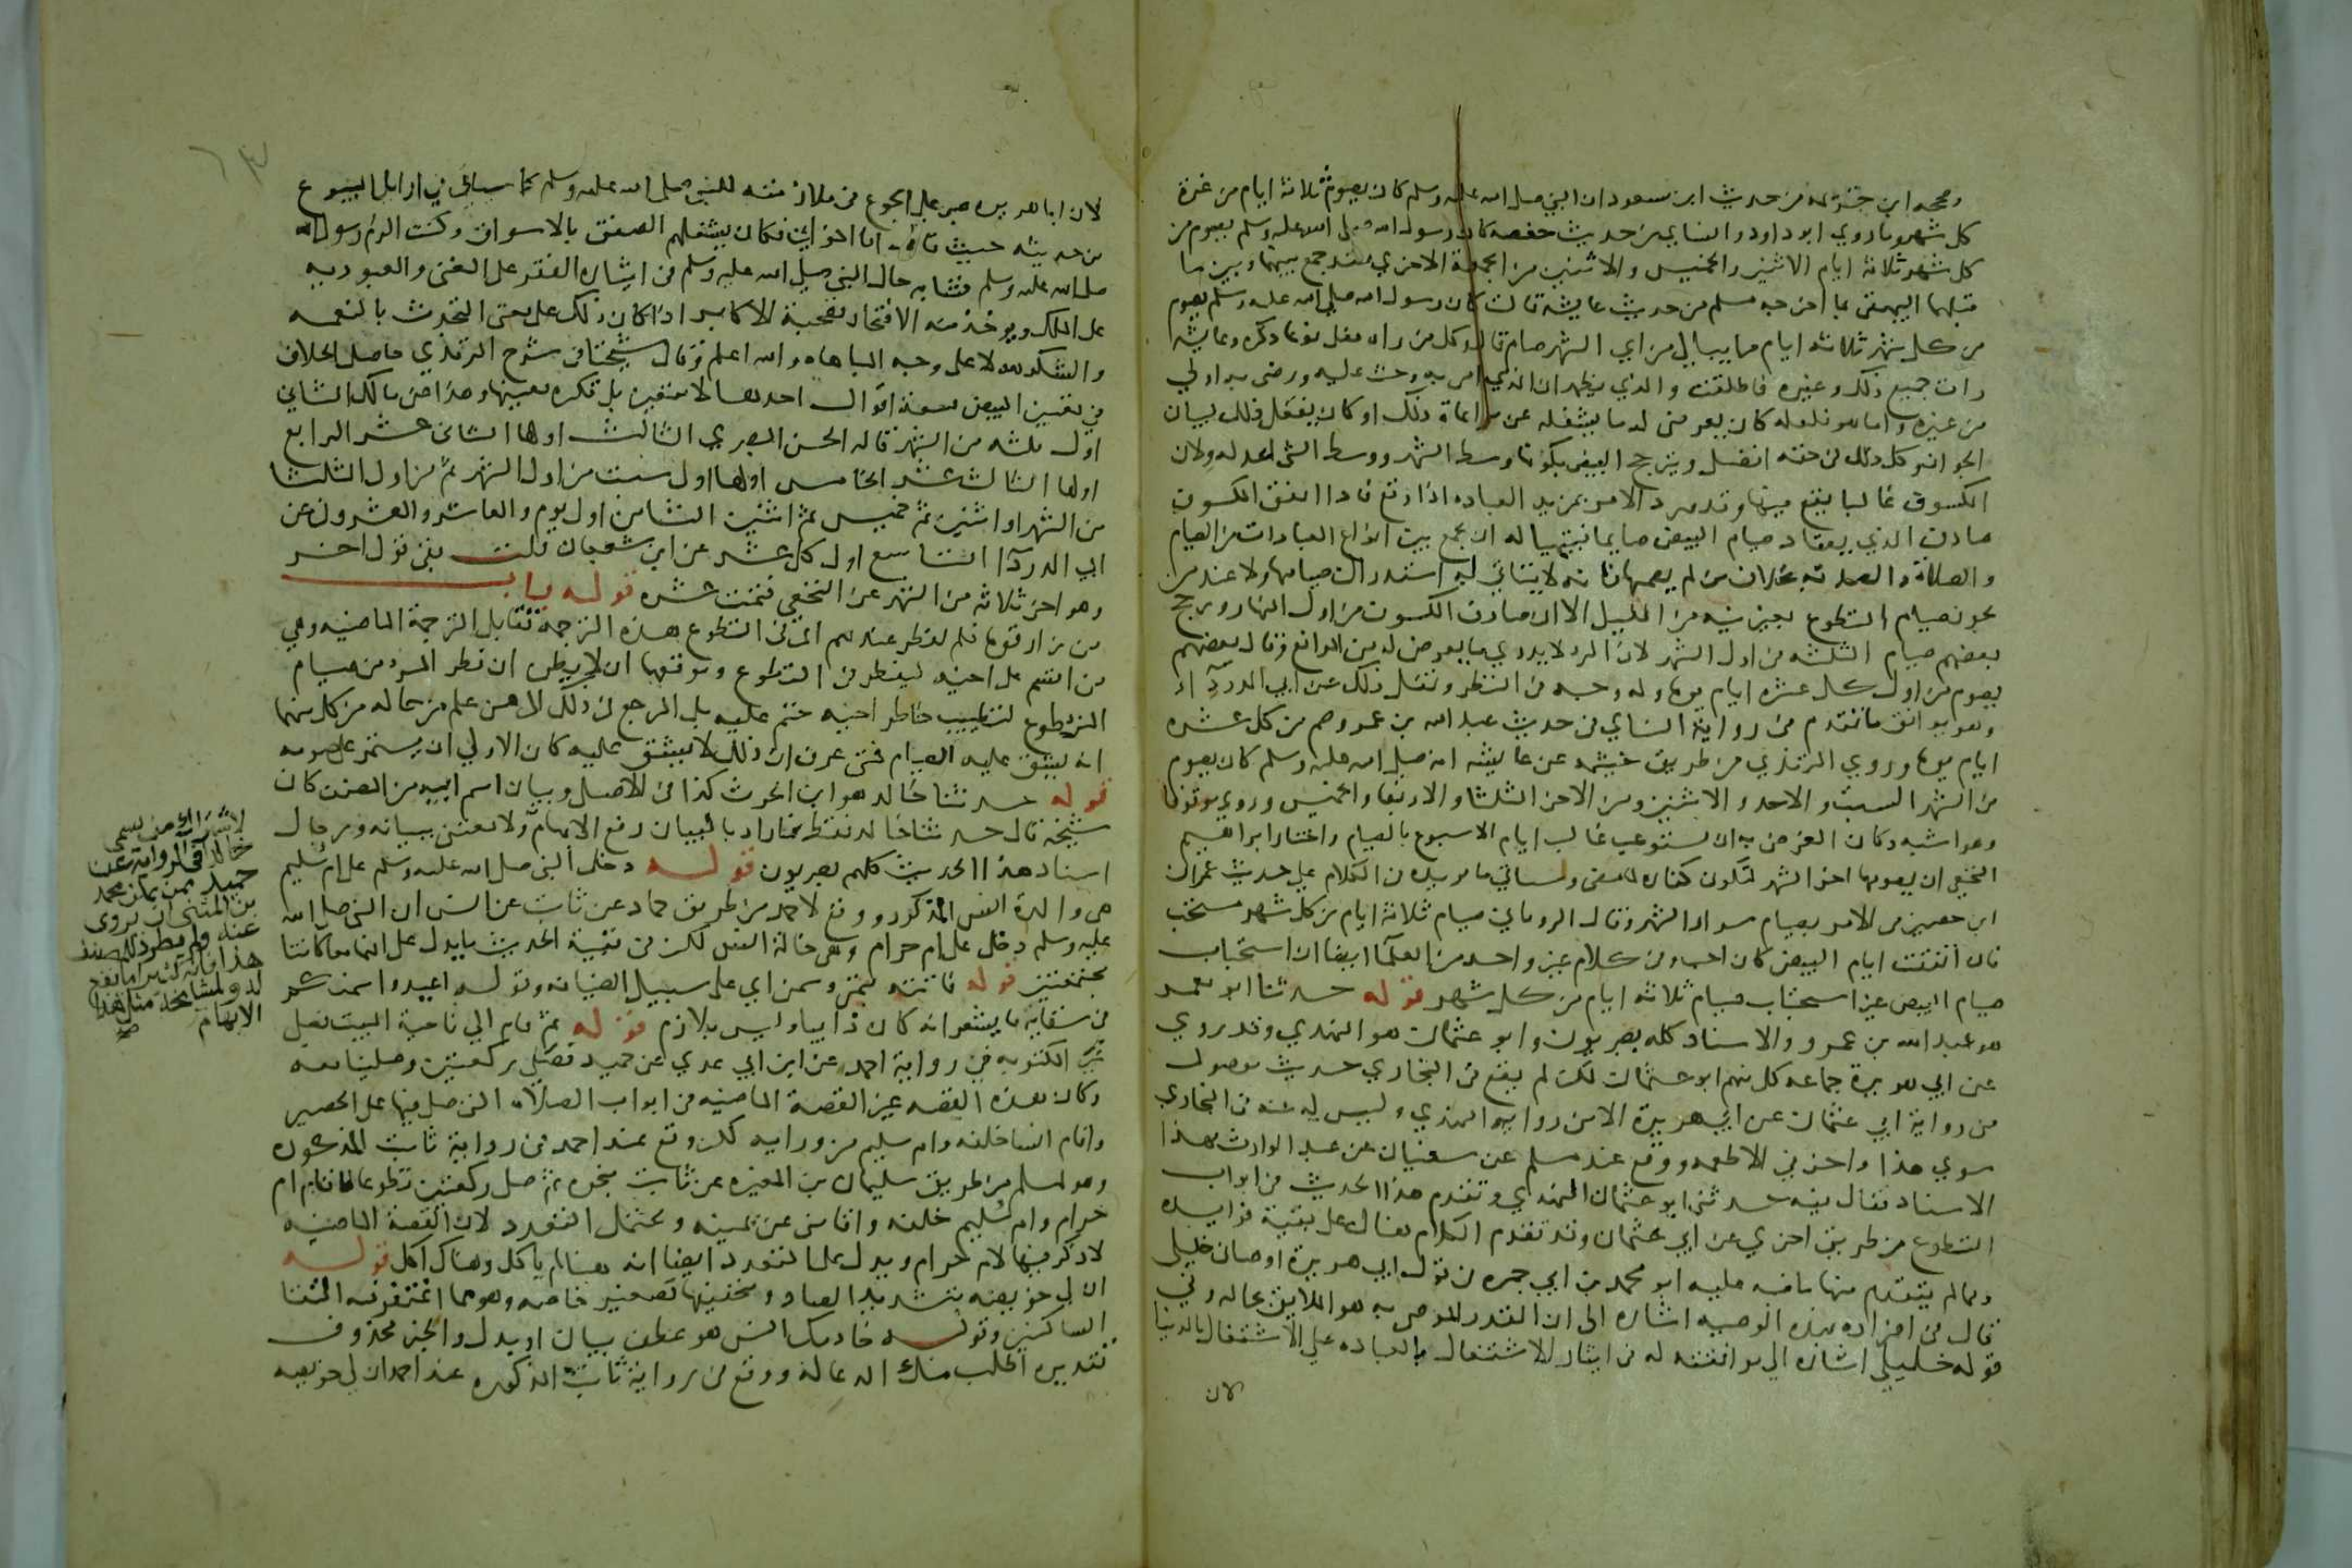 وصححه ابن خزيمه من حديث ابن مسعود ان النبي صلى الله عليه وسلم كان يصوم ثلاثة ايام من غرة
كل شهر وما روي ابو داود والنساي من حديث حفصة كان رسول الله صلى الله عليه وسلم يصوم من
كل شهر ثلاثة ايام الاثنين والخميس والاثنين من الجمعة الاخري فقد جمع بينهما وبين ما
قبلهما البيهقي بما اخرجه مسلم من حديث عايشة قالت كان رسول الله صلى الله عليه وسلم يصوم
من كل شهر ثلاثة ايام ما يبالي من اي الشهر صام قال وكل من راه فعل نوعا ذكره وعايشة
رات جميع ذلك وغيره فاطلقت والذي يظهر ان الذي امر به وحث عليه ووصى به اولي
من غيره واما هو فلعله كان يعرض له ما يشغله عن مراعاة ذلك او كان يفعل ذلك لبيان
الجواز وكل ذلك في حقه افضل ويترجح البيض بكونها وسط الشهر ووسط الشي اعدله ولان
الكسوف غالبا يقع فيها وقد ورد الامر بمزيد العباده اذا وقع فاذا اتفق الكسوف
صادف الذي يعتاد صيام البيض صايما فيتهيا له ان يجمع بين انواع العبادات من الصيام
والصلاة والصدقة بخلاف من لم يصمها فانه لا يتاتي له استدراك صيامها ولا عند من
يجوز صيام التطوع بغير نية من الليل الا ان صادف الكسوف من اول النهار ورجح
بعضهم صيام الثلثه في اول الشهر لان المرء لا يدري ما يعرض له من الموانع وقال بعضهم
يصوم من اول كل عشرة ايام يوما وله وجه في النظر ونقل ذلك عن ابي الدردآ
وهو يوافق ما تقدم في رواية النساي في حديث عبد الله بن عمرو وصم من كل عشره
ايام يوما وروي الترمذي من طريق خيثمه عن عايشه انه صلى الله عليه وسلم كان يصوم
من الشهر السبت والاحد والاثنين ومن الاخر الثلثا والاربعا والخميس وروي موقوفا
وهو اشبه وكان الغرض به ان يستوعب غالب ايام الاسبوع بالصيام واختار ابراهيم
النخعي ان يصومها اخر الشهر لتكون كفاره لما مضى وسياتي ما يويده في الكلام على حديث عمران
ابن حصين في الامر بصيام سرار الشهر وقال الروياني صيام ثلاثة ايام من كل شهر مستحب
فان اتفقت ايام البيض كان احب وفي كلام غير واحد من العلمآ ايضا ان استحباب
صيام البيض غير استحباب صيام ثلاثه ايام من كل شهر قوله حدثنا ابو معمر
هو عبد الله بن عمرو والاسناد كله بصريون وابو عثمان هو النهدي وقد روي
عن ابي هريرة جماعه كل منهم ابو عثمان لكن لم يقع في البخاري حديث موصول
من رواية ابي عثمان عن ابي هريرة الا من رواية النهدي وليس له عنه في البخاري
سوي هذا واخر في الاطعمه ووقع عند مسلم عن سفيان عن عبد الوارث بهذا
الاسناد فقال فيه حدثني ابو عثمان النهدي وتقدم هذا الحديث في ابواب
التطوع من طريق اخري عن ابي عثمان وقد تقدم الكلام هناك على بقية فوايده
ومما لم يتقدم منها ما نبه عليه ابو محمد بن ابي جمره في قول ابي هريرة اوصاني خليلي
قال في افراده بهذه الوصيه اشاره الى ان القدر الموصى به هو اللايق بحاله وفي
قوله خليلي اشارة الي موافقته له في ايثار الاشتغال بالعباده على الاشتغال بالدنيا
لان
لان ابا هريره صبر على الجوع في ملازمته للنبي صلى الله عليه وسلم كما سياتي في اوايل البيوع
من حديثه حيث قال اما اخواني فكان يشغلهم الصفق بالاسواق وكنت الزم رسول الله
صلى الله عليه وسلم فشابه حال النبي صلى الله عليه وسلم في ايثاره الفقر على الغنى والعبوديه
على الملك ويوخذ منه الافتخار بصحبة الاكابر اذا كان ذلك على معنى التحدث بالنعمه
والشكر لله لا على وجه المباهاه والله اعلم وقال شيخنا في شرح الترمذي حاصل الخلاف
في تعيين البيض تسعة اقوال احدها لا تتعين بل تكره تعيينها وهذا عن مالك الثاني
اول ثلثه من الشهر قاله الحسن البصري الثالث اولها الثاني عشر الرابع
اولها الثالث عشر الخامس اولها اول سبت من اول الشهر ثم من اول الثلثا
من الشهر او اثنين ثم خميس ثم اثنين الثامن اول يوم والعاشر والعشرون عن
ابي الدردآ التاسع اول كل عشر عن ابن شعبان قلت بقي قول اخر
وهو اخر ثلاثه من الشهر عن النخعي فتمت عشره قوله باب
من زار قوما فلم يفطر عندهم اى في التطوع هذه الترجمة تقابل الترجمة الماضيه وهي
من اقسم على اخيه ليفطر في التطوع وموقعها ان لا يظن ان فطر المرء من صيام
التطوع لتطييب خاطر اخيه حتم عليه بل المرجع في ذلك الى من علم من حاله من كل منهما
انه يشق عليه الصيام فمتى عرف ان ذلك لا يشق عليه كان الاولي ان يستمر على صومه
قوله حدثنا خالد هو ابن الحرث كذا في الاصل وبيان اسم ابيه من المصنف كان
شيخه قال حدثنا خالد فقط فاراد بالبيان رفع الابهام ولا يعتني ببيانه ورجال
اسناد هذا الحديث كلهم بصريون قوله دخل النبي صلى الله عليه وسلم على ام سليم
هي والدة انس المذكور ووقع لاحمد من طريق حماد عن ثابت عن انس ان النبي صلى الله
عليه وسلم دخل على ام حرام وهي خالة انس لكن في بقية الحديث ما يدل على انهما معا كانتا
مجتمعتين قوله فاتته بتمر وسمن اي على سبيل الضيافه وقوله اعيدوا سمنكم
في سقايه ما يشعر انه كان ذايبا وليس بلازم قوله ثم قام الي ناحية البيت فصلى
غير المكتوبه في رواية احمد عن ابن ابي عدي عن حميد فصلى ركعتين وصلينا معه
وكان هذه القصه غير القصة الماضيه في ابواب الصلاة التي صلى فيها على الحصير
واقام انسا خلفه وام سليم من ورايه لكن وقع عند احمد في رواية ثابت المذكوره
وهو لمسلم من طريق سليمان بن المغيره عن ثابت نحوه ثم صلى ركعتين تطوعا فاقام ام
حرام وام سليم خلفه واقامني عن يمينه ويحتمل التعدد لان القصة الماضيه
لا ذكر فيها لام حرام ويدل على التعدد ايضا انه هنا لم ياكل وهناك اكل قوله
ان لي خويصه بتشديد الصاد وتخفيفها تصغير خاصه وهو مما اغتفر فيه التقا
الساكنين وقوله خادمك انس هو عطف بيان او بدل والخبر محذوف
تقديره اطلب منك الدعا له ووقع في رواية ثابت المذكوره عند احمد ان لي خويصه
لاشتراك من يسمى
خالدا في الرواية عن
حميد ممن يمكن محمد
بن المثنى ان يروى
عنه ولم يطرد للمصنف
هذا فانه كثيرا ما يقع
له ولمشايخه مثل هذا
الابهام
صح